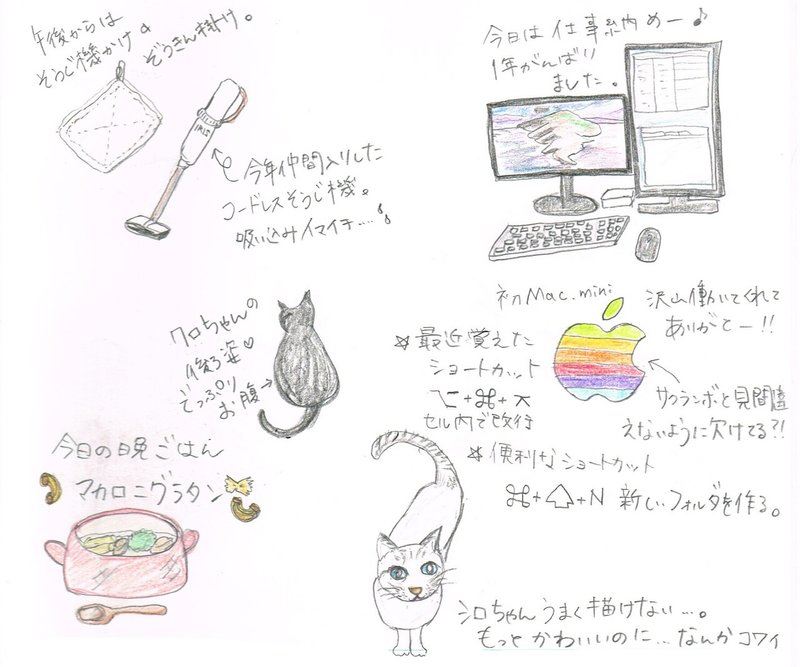 午後からは
そうじ機かけ&
ぞうきん掛け。
IRIS
今年仲間入りした
コードレスそうじ機。
吸い込みイマイチ…。
今日は仕事納めー♪
1年がんばり
ました。
初Mac.mini
沢山働いてくれて
ありがとー!!
サクランボと見間違
えないように欠けてる?!
※最近覚えた
ショートカット
⌥+⌘+⌅
セル内で改行
※便利なショートカット
⌘+⇧+N 新しいフォルダを作る。
クロちゃんの
後ろ姿♡
でっぷり
お腹→
今日の晩ごはん
マカロニグラタン
シロちゃんうまく描けない…。
もっとかわいいのに…なんかコワイ